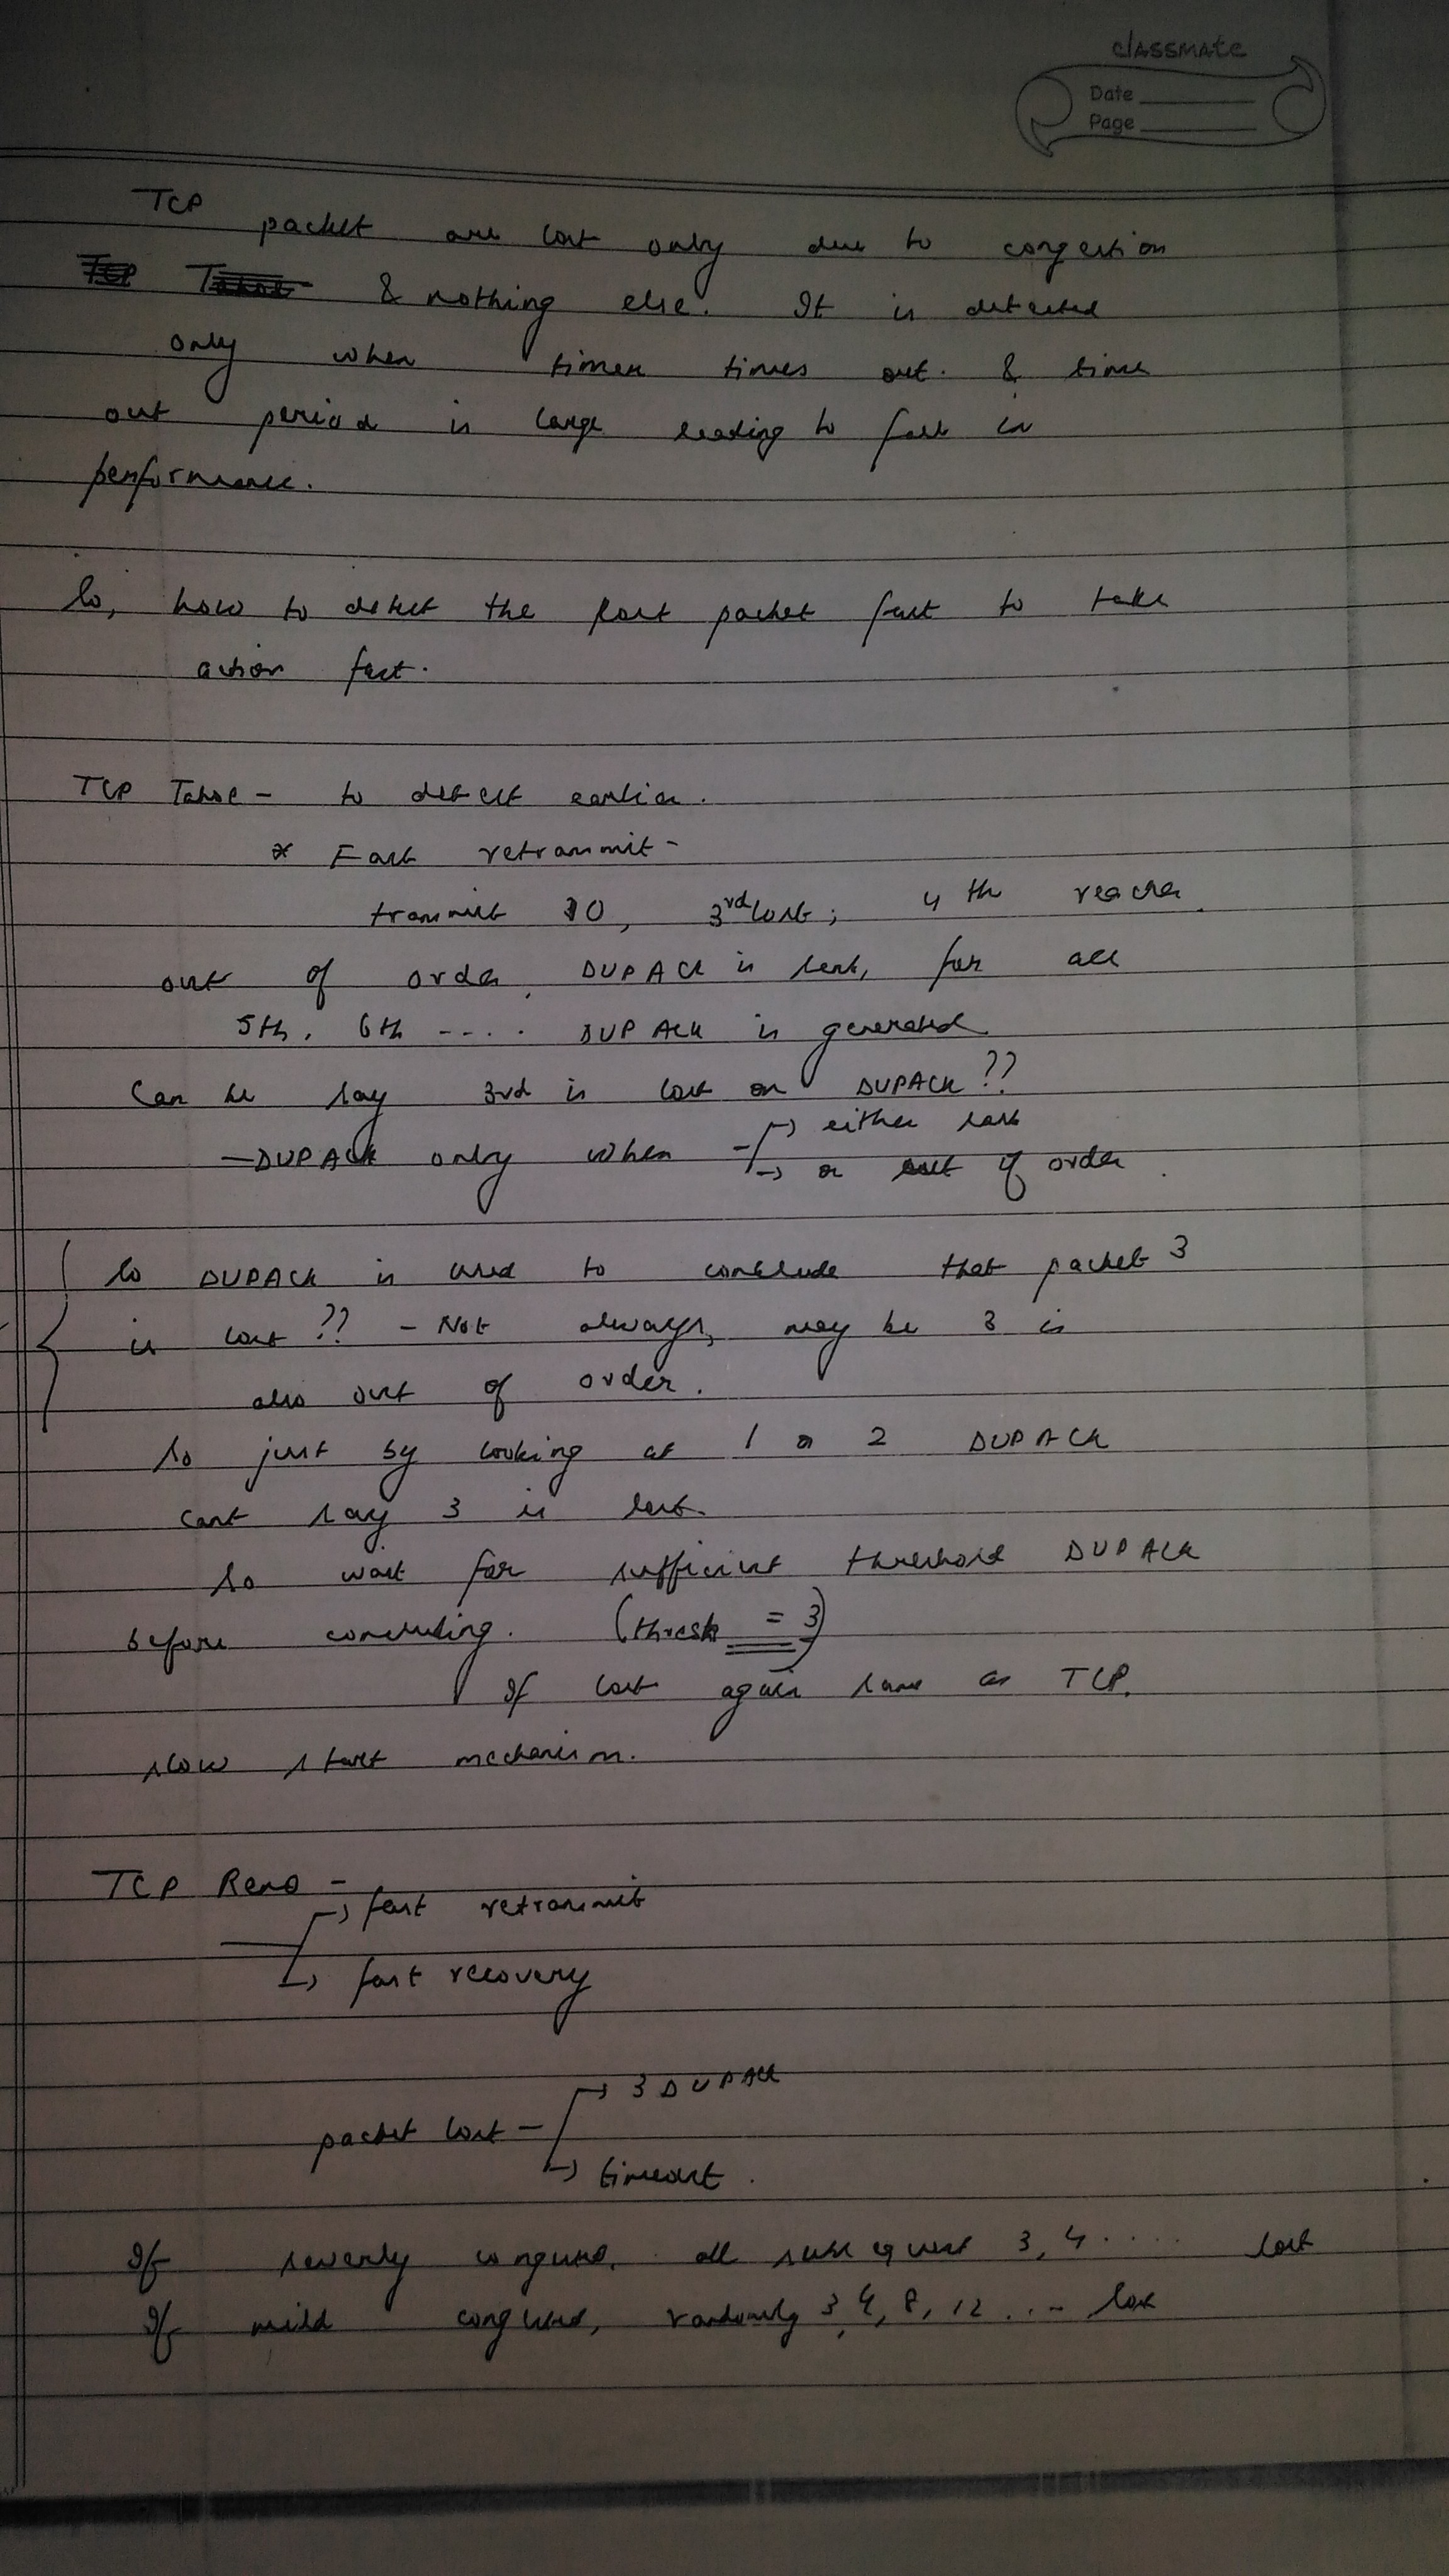 classmate
Date
Page
TCP packet are lost only due to congestion
& nothing else. It is detected
only when timer times out. & time
out period is large leading to fall in
performance.
So, how to detect the lost packet fast to take
action fast.
TCP Tahoe - to detect earlier.
* Fast retransmit -
transmit 10, 3rd lost; 4th reaches
out of order. DUPACK is sent, for all
5th, 6th .... DUPACK is generated
Can be say 3rd is lost on DUPACK??
- DUPACK only when → either lost
→ or out of order.
So DUPACK is used to conclude that packet 3
is lost?? - Not always, may be 3 is
also out of order.
So just by looking at 1 or 2 DUPACK
cant say 3 is lost.
So wait for sufficient threshold DUPACK
before concluding. (thresh = 3)
If lost again same as TCP.
slow start mechanism.
TCP Reno -
→ fast retransmit
→ fast recovery
→ 3 DUPACK
packet lost -
→ timeout.
If severly congested, all subsequent 3, 4 ..... lost
If mild congested, randomly 3, 4, 8, 12 ... lost